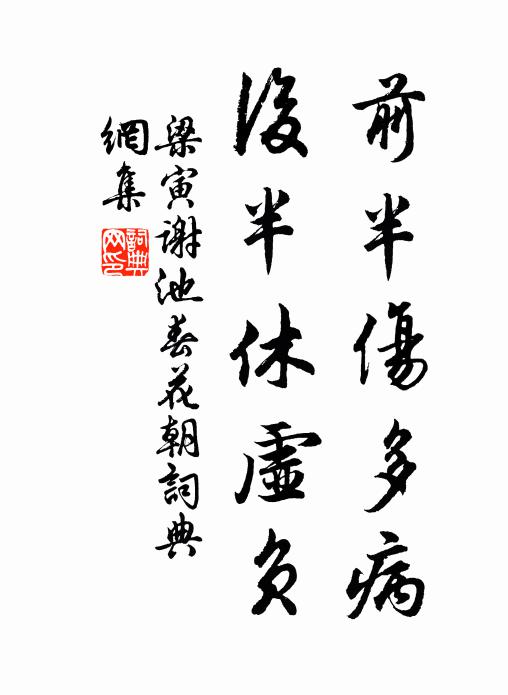 前半傷多病
後半休虛負
梁寅謝池春花朝詞典
網集
詞典網印